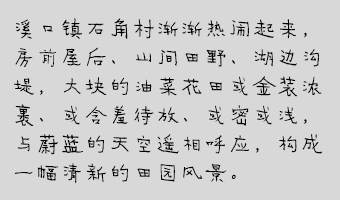 溪口镇石角村渐渐热闹起来，
房前屋后、山间田野、湖边沟
堤，大块的油菜花田或金装浓
裹、或含羞待放、或密或浅，
与蔚蓝的天空遥相呼应，构成
一幅清新的田园风景。